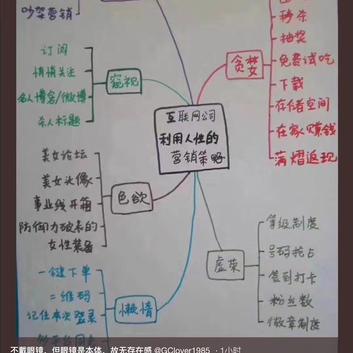 吵架营销
订阅
悄悄关注
名人博客/微博
杀人标题
窥视
美女论坛
美女头像
事业线开箱
防御力破表的
女性装备
色欲
一键下单
二维码
记住本次登录
懒惰
互联网公司
利用人性的
营销策略
贪婪
秒杀
抽奖
免费试吃
下载
存储空间
在家赚钱
满熠返现
虚荣
等级制度
号码抢占
签到打卡
粉丝数
徽章制度
不戴眼镜，但眼镜是本体，故无存在感 @GClover1985 · 1小时